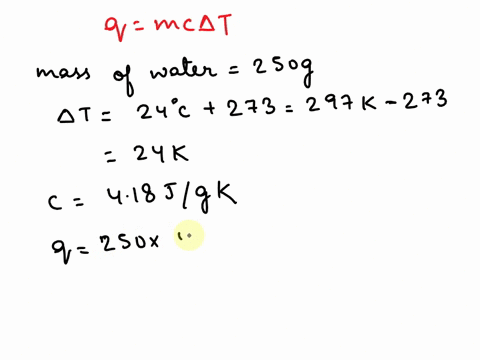 q = mcΔT
mass of water = 250g
ΔT = 24°c + 273 = 297K - 273
= 24K
c = 4.18 J/gK
q = 250x